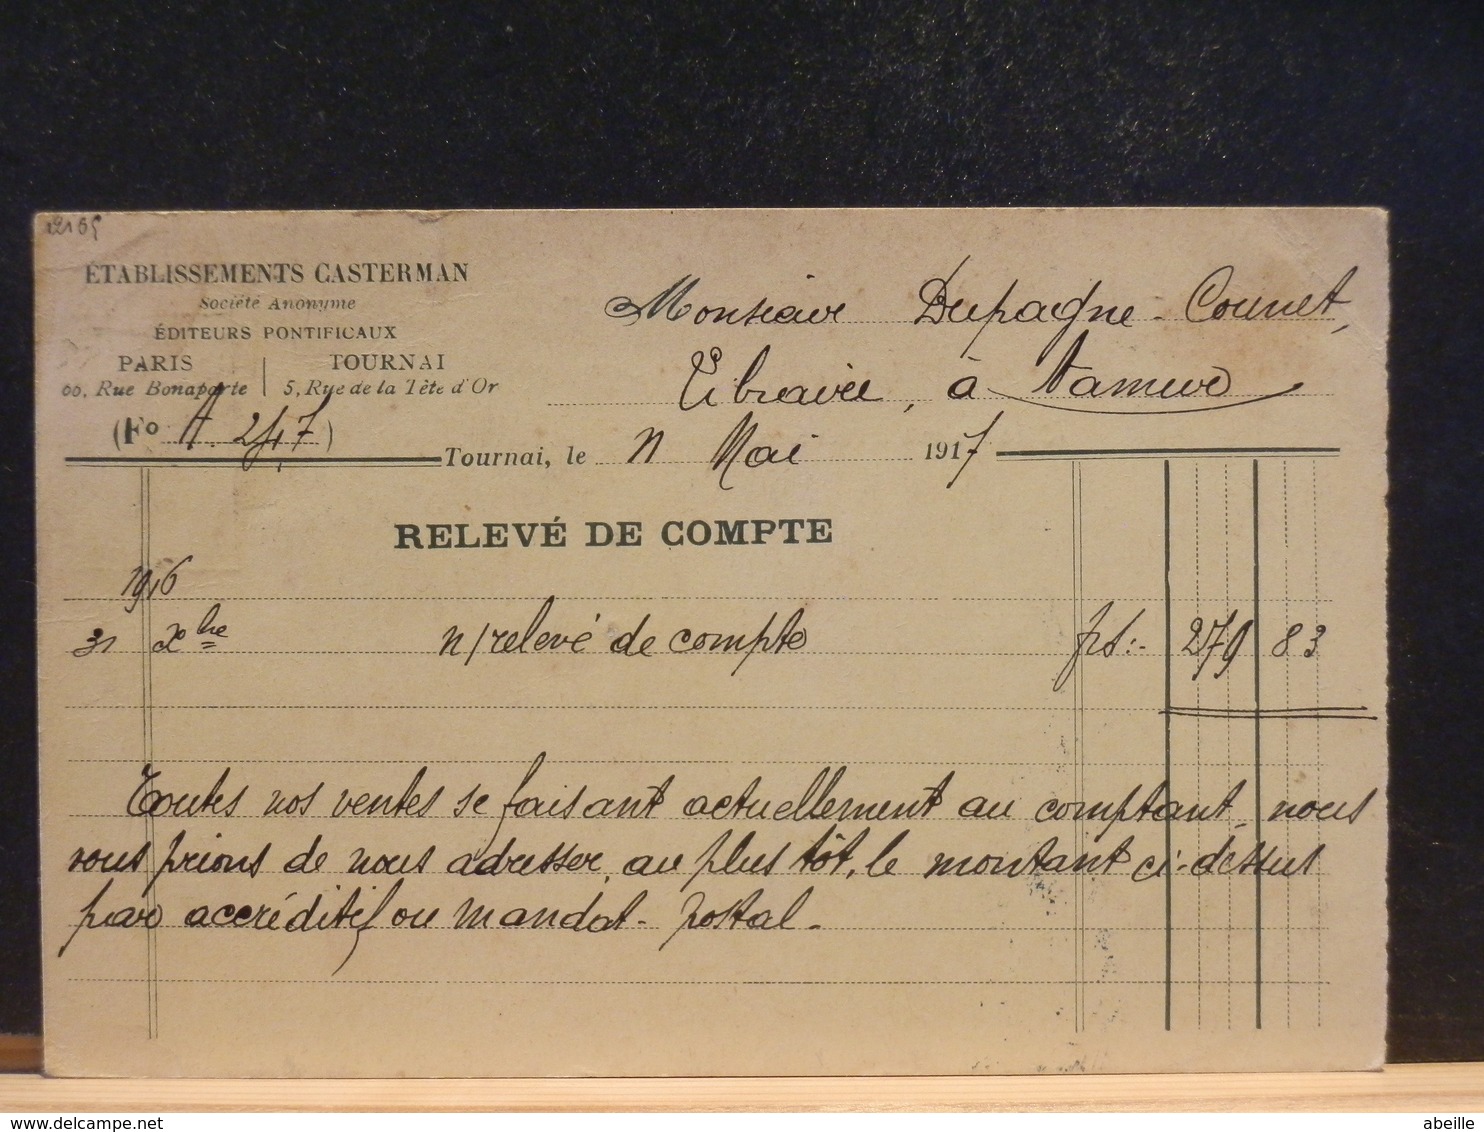 ÉTABLISSEMENTS CASTERMAN
Société Anonyme
ÉDITEURS PONTIFICAUX
PARIS TOURNAI
Rue Bonaparte 5, Rue de la Tête d'Or
(Fo )
Monsieur Dupagne-Counet,
Libraire, à Namur
Tournai, le 11 Mai 1917
RELEVÉ DE COMPTE
1916
31 Xbre n/relevé de compte frs:- 279 83
Toutes nos ventes se faisant actuellement au comptant, nous
vous prions de nous adresser, au plus tôt, le montant ci-dessus
par accréditif ou mandat-postal.
delcampe.net
abeille